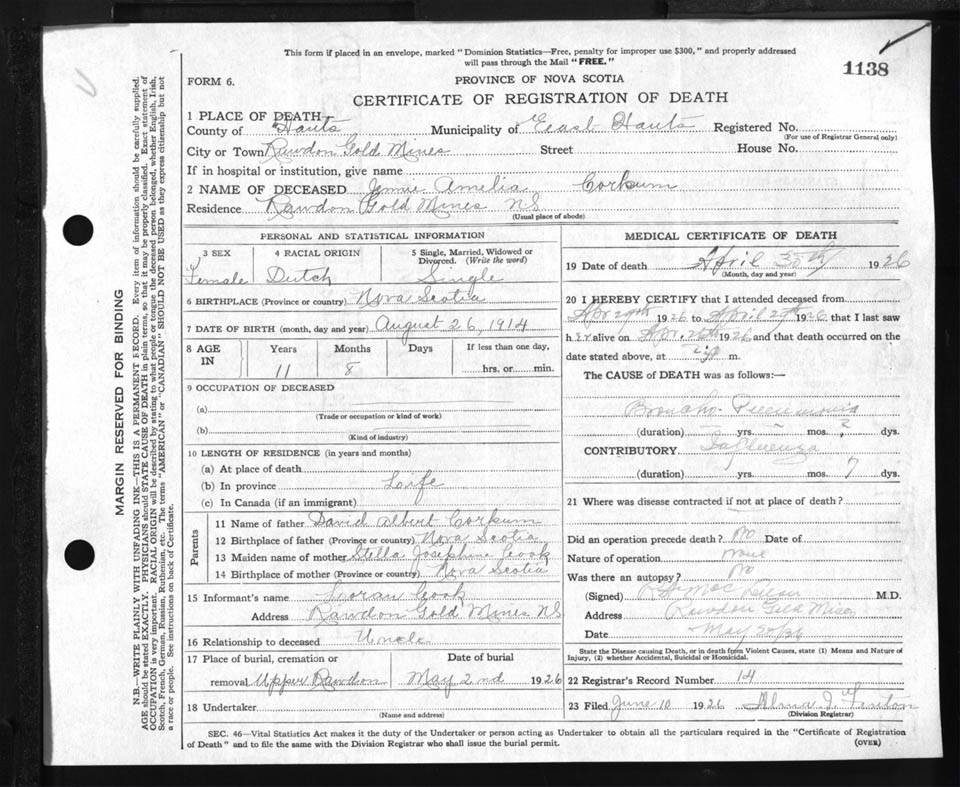 This form if placed in an envelope, marked "Dominion Statistics—Free, penalty for improper use $300," and properly addressed
will pass through the Mail "FREE."
1138
FORM 6.
PROVINCE OF NOVA SCOTIA
CERTIFICATE OF REGISTRATION OF DEATH
1 PLACE OF DEATH
County of Hants Municipality of East Hants Registered No.
(For use of Registrar General only)
City or Town Rawdon Gold Mines Street House No.
If in hospital or institution, give name
2 NAME OF DECEASED Jennie Amelia Corkum
Residence Rawdon Gold Mines NS
(Usual place of abode)
PERSONAL AND STATISTICAL INFORMATION
3 SEX 4 RACIAL ORIGIN 5 Single, Married, Widowed or
Divorced. (Write the word)
Female Dutch Single
6 BIRTHPLACE (Province or country) Nova Scotia
7 DATE OF BIRTH (month, day and year) August 26, 1914
8 AGE IN Years Months Days If less than one day,
11 8 hrs. or min.
9 OCCUPATION OF DECEASED
(a)
(Trade or occupation or kind of work)
(b)
(Kind of industry)
10 LENGTH OF RESIDENCE (in years and months)
(a) At place of death
(b) In province Life
(c) In Canada (if an immigrant)
Parents
11 Name of father David Albert Corkum
12 Birthplace of father (Province or country) Nova Scotia
13 Maiden name of mother Stella Josephine Cook
14 Birthplace of mother (Province or country) Nova Scotia
15 Informant's name Loran Cook
Address Rawdon Gold Mines NS
16 Relationship to deceased Uncle
17 Place of burial, cremation or Date of burial
removal Upper Rawdon May 2nd 1926
18 Undertaker
(Name and address)
MEDICAL CERTIFICATE OF DEATH
19 Date of death April 1926
(Month, day and year)
20 I HEREBY CERTIFY that I attended deceased from
Apr 29th 1926 to April 29th 1926 that I last saw
h er alive on Apr. 1926 and that death occurred on the
date stated above, at m.
The CAUSE of DEATH was as follows:—
Broncho Pneumonia
(duration) yrs. mos. dys.
CONTRIBUTORY Influenza
(duration) yrs. mos. 7 dys.
21 Where was disease contracted if not at place of death?
Did an operation precede death? No Date of
Nature of operation none
Was there an autopsy? No
(Signed) M.D.
Address Rawdon Gold Mines
Date May
State the Disease causing Death, or in death from Violent Causes, state (1) Means and Nature of
Injury, (2) whether Accidental, Suicidal or Homicidal.
22 Registrar's Record Number 14
23 Filed June 10 1926 Alma J. Fenton
(Division Registrar)
SEC. 46—Vital Statistics Act makes it the duty of the Undertaker or person acting as Undertaker to obtain all the particulars required in the "Certificate of Registration
of Death" and to file the same with the Division Registrar who shall issue the burial permit. (OVER)
MARGIN RESERVED FOR BINDING
N.B.—WRITE PLAINLY WITH UNFADING INK—THIS IS A PERMANENT RECORD. Every item of information should be carefully supplied.
AGE should be stated EXACTLY. PHYSICIANS should STATE CAUSE OF DEATH in plain terms, so that it may be properly classified. Exact statement of
OCCUPATION is very important. RACIAL ORIGIN will be described by stating to what people or tongue the deceased person belonged, whether English, Irish,
Scotch, French, German, Russian, Ruthenian, etc. The terms "AMERICAN" or "CANADIAN" SHOULD NOT BE USED as they express citizenship but not
a race or people. See instructions on back of Certificate.